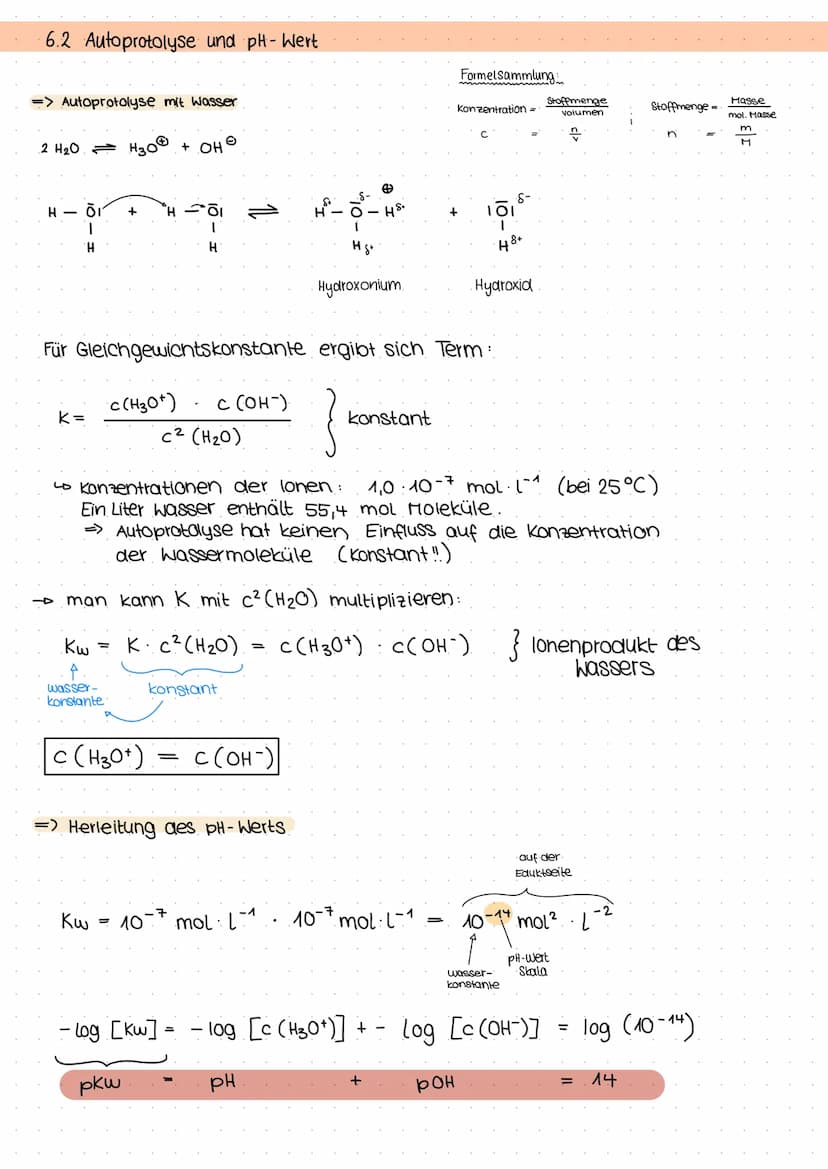 6.2 Autoprotolyse und pH-Wert
Formelsammlung:
=> Autoprotolyse mit Wasser
Konzentration = Stoffmenge / Volumen ; Stoffmenge = Masse / mol. Masse
c = n / V    n = m / M
2 H₂O ⇌ H₃O⊕ + OH⊖
⊕
H — O̅I + H — O̅I ⇌ Hδ+ — Oδ- — Hδ+ + IO̅I δ-
H H Hδ+ Hδ+
Hydroxonium Hydroxid
Für Gleichgewichtskonstante ergibt sich Term:
K = c(H₃O⁺) · c(OH⁻) / c²(H₂O) } konstant
↳ Konzentrationen der Ionen: 1,0 · 10⁻⁷ mol · l⁻¹ (bei 25°C)
Ein Liter Wasser enthält 55,4 mol Moleküle.
=> Autoprotolyse hat keinen Einfluss auf die Konzentration
der Wassermoleküle (Konstant!!)
→ man kann K mit c²(H₂O) multiplizieren:
Kw = K · c²(H₂O) = c(H₃O⁺) · c(OH⁻) } Ionenprodukt des
Wassers
Wasser-
konstante
konstant
c(H₃O⁺) = c(OH⁻)
=> Herleitung des pH-Werts
auf der
Eduktseite
Kw = 10⁻⁷ mol · L⁻¹ · 10⁻⁷ mol · L⁻¹ = 10⁻¹⁴ mol² · L⁻²
pH-Wert
Skala
Wasser-
konstante
-log [Kw] = -log [c(H₃O⁺)] + - log [c(OH⁻)] = log (10⁻¹⁴)
pKw = pH + pOH = 14